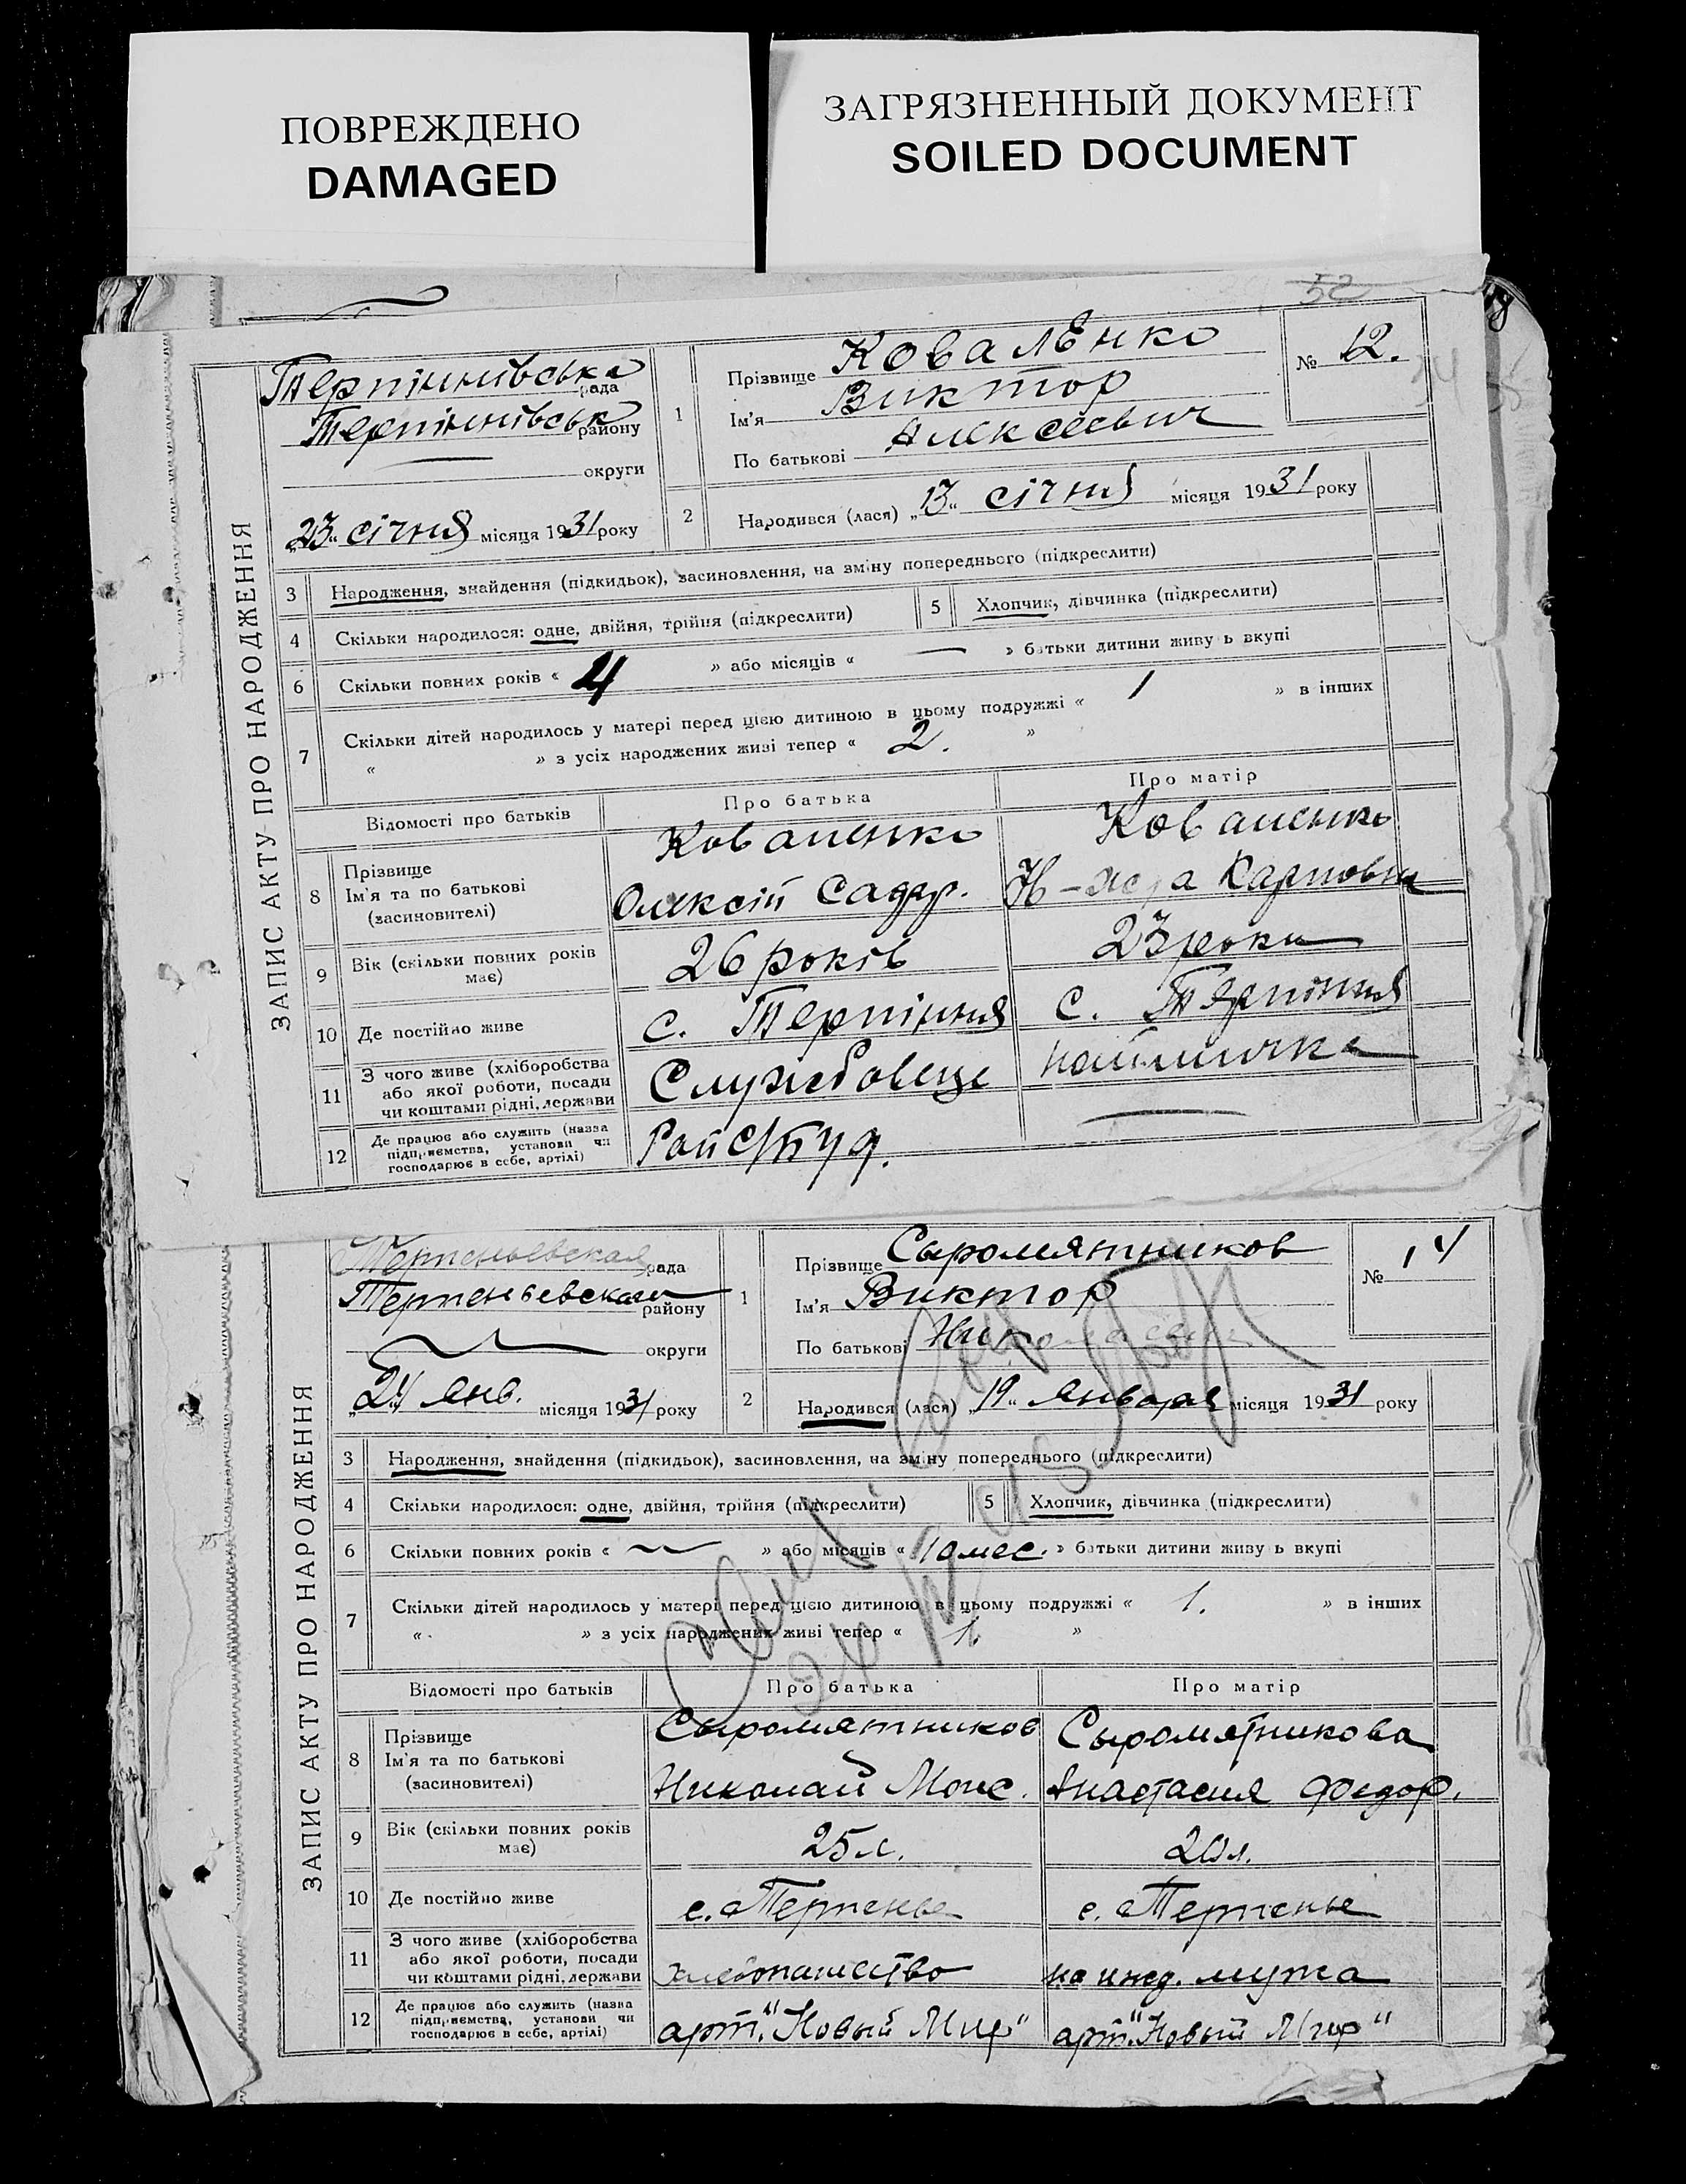 ПОВРЕЖДЕНО
DAMAGED
ЗАГРЯЗНЕННЫЙ ДОКУМЕНТ
SOILED DOCUMENT
52
ЗАПИС АКТУ ПРО НАРОДЖЕННЯ
Терпіннівська рада
Терпіннівськ району
округи
„23“ січня місяця 1931 року
1 Прізвище Коваленко
Ім'я Виктор
По батькові Алексеевич
№ 12.
2 Народився (лася) „13“ січня місяця 1931 року
3 Народження, знайдення (підкидьок), засиновлення, на зміну попереднього (підкреслити)
4 Скільки народилося: одне, двійня, трійня (підкреслити) 5 Хлопчик, дівчинка (підкреслити)
6 Скільки повних років « 4 » або місяців « — » батьки дитини живу ь вкупі
7 Скільки дітей народилось у матері перед цією дитиною в цьому подружжі « 1 » в інших
« » з усіх народжених живі тепер « 2. »
Відомості про батьків Про батька Про матір
8 Прізвище Коваленко Коваленко
Ім'я та по батькові Олексій Карповна
(засиновителі)
9 Вік (скільки повних років має) 26 років 23 роки
10 Де постійно живе с. Терпіння с. Терпіння
11 З чого живе (хліборобства
або якої роботи, посади
чи коштами рідні, держави Службовець
12 Де працює або служить (назва
підприємства, установи чи
господарює в себе, артілі)
ЗАПИС АКТУ ПРО НАРОДЖЕННЯ
Терпеньевская рада
Терпеньевского району
округи
„24“ янв. місяця 1931 року
1 Прізвище Сыромятников
Ім'я Виктор
По батькові Николаевич
№ 14
2 Народився (лася) „19“ января місяця 1931 року
3 Народження, знайдення (підкидьок), засиновлення, на зміну попереднього (підкреслити)
4 Скільки народилося: одне, двійня, трійня (підкреслити) 5 Хлопчик, дівчинка (підкреслити)
6 Скільки повних років « » або місяців « 10 мес. » батьки дитини живу ь вкупі
7 Скільки дітей народилось у матері перед цією дитиною в цьому подружжі « 1. » в інших
« » з усіх народжених живі тепер « 1. »
Відомості про батьків Про батька Про матір
8 Прізвище Сыромятников Сыромятникова
Ім'я та по батькові Николай Моис. Анастасия Федор.
(засиновителі)
9 Вік (скільки повних років має) 25 л. 20 л.
10 Де постійно живе с. Терпенье с. Терпенье
11 З чого живе (хліборобства
або якої роботи, посади
чи коштами рідні, держави хлебопашество на ижд. мужа
12 Де працює або служить (назва
підприємства, установи чи
господарює в себе, артілі) арт. "Новый Мир" арт. "Новый Мир"